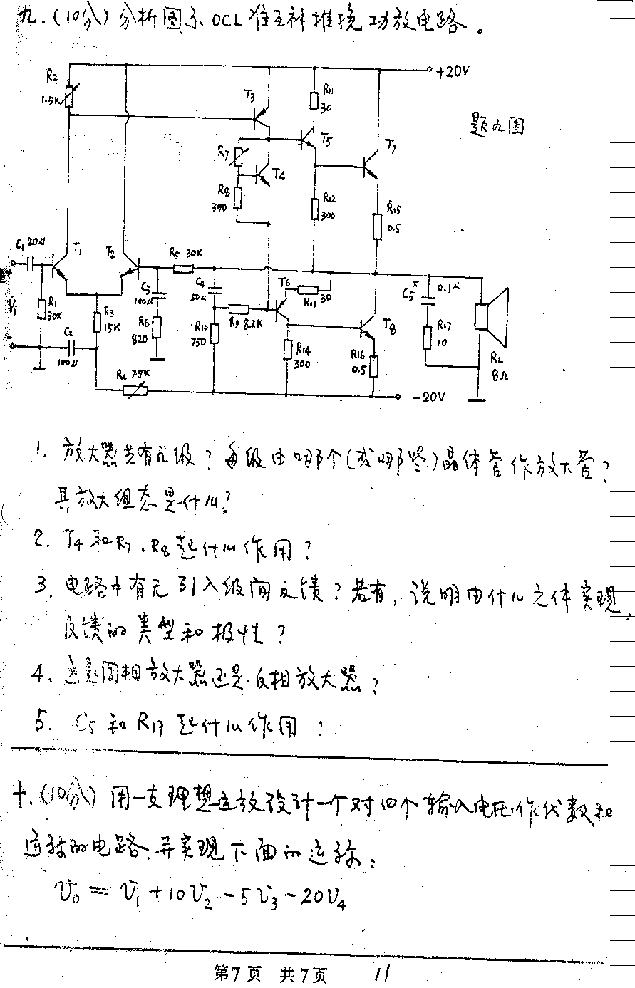 九.(10分)分析图示OCL准互补推挽功放电路。
R2
1.5K
+20V
T3
R11
30
T5
T7
题九图
R7
T4
R8
390
R12
300
R15
0.5
C1 20μ
T1
T2
R5 30K
R1
30K
R3
15K
C3
100μ
R6
820
C4
50μ
R9 8.2K
R10
750
T6
R13 30
T8
R14
300
R16
0.5
C5
0.1μ
R17
10
RL
8Ω
C2
100μ
R4
-20V
1. 放大器共有几级?每级由哪个(或哪些)晶体管作放大管?
其放大组态是什么?
2. T4和R7、R8起什么作用?
3. 电路中有无引入级间反馈?若有,说明由什么元件实现,
反馈的类型和极性?
4. 这是同相放大器还是反相放大器?
5. C5和R17起什么作用?
十.(10分)用一支理想运放设计一个对四个输入电压作代数和
运算的电路,并实现下面的运算:
V0 = V1 + 10V2 - 5V3 - 20V4
第7页 共7页 11